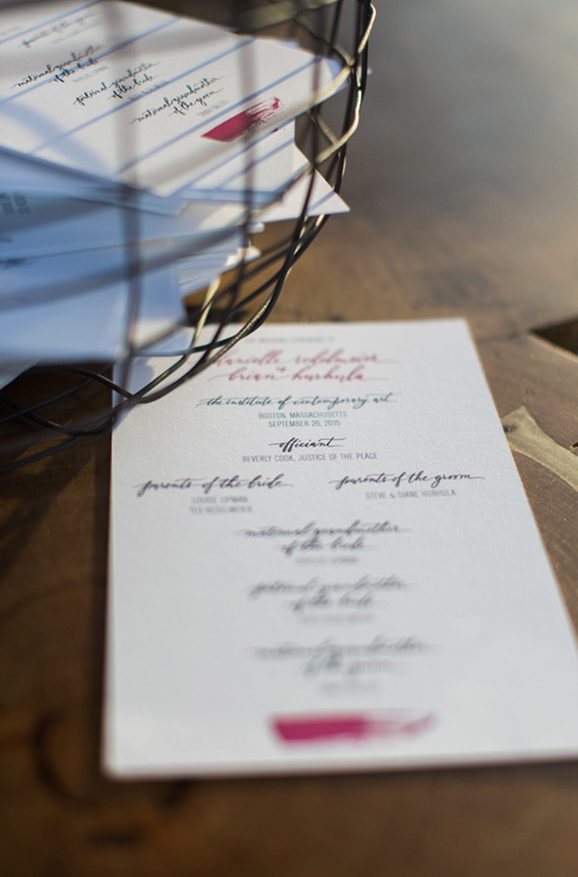 parents of the groom
maternal grandmother
of the bride
paternal grandmother
of the bride
maternal grandmother
of the groom
danielle redelmeier
&
brian hurhula
the institute of contemporary art
BOSTON, MASSACHUSETTS
SEPTEMBER 26, 2015
officiant
BEVERLY COOK, JUSTICE OF THE PEACE
parents of the bride
LOUISE LIPMAN
TED REDELMEIER
parents of the groom
STEVE & DIANE HURHULA
maternal grandmother
of the bride
PHYLLIS LIPMAN
paternal grandmother
of the bride
maternal grandmother
of the groom